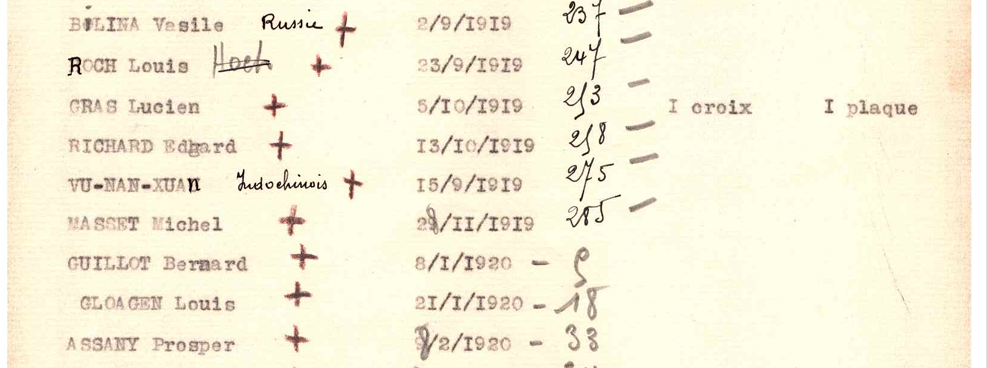 BOLINA Vasile Russie + 2/9/1919 237 —
ROCH Louis Hoch + 23/9/1919 247 —
GRAS Lucien + 5/10/1919 253 — I croix I plaque
RICHARD Edgard + 13/10/1919 258 —
VU-NAN-XUAn Indochinois + 15/9/1919 275 —
MASSET Michel + 28/II/1919 285 —
GUILLOT Bernard + 8/I/1920 — 9
GLOAGEN Louis + 2I/I/1920 - 18
ASSANY Prosper + 9/2/1920 - 33